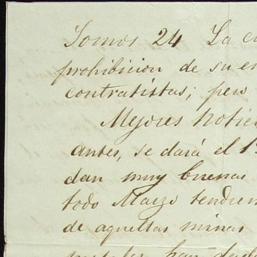 Somos 24 La
prohibicion de su
contratistas; pero
Mejores
antes, se dará el 1
dan muy buenas
todo Marzo
de aquellas minas